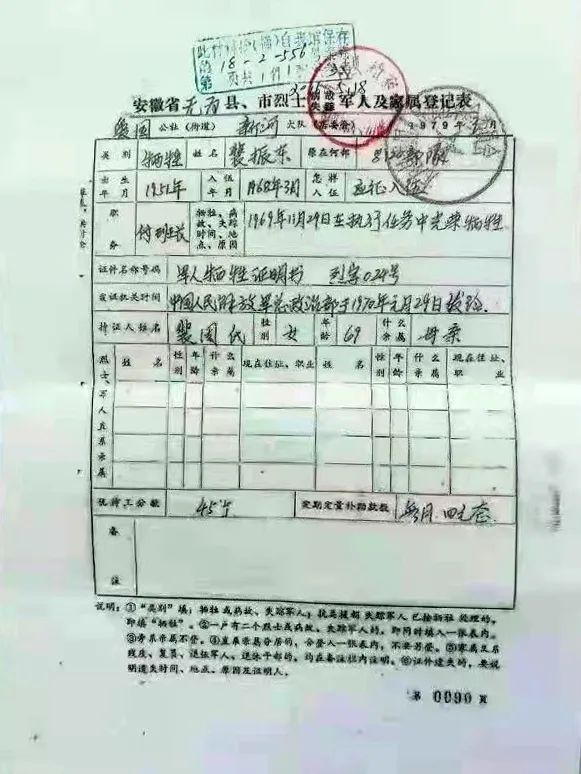 18-2-556
安徽省无为县、市烈士 军人及家属登记表
公社（街道） 新河 大队（居委会） 1979年 月
类别 牺牲 姓名 裴振东 原在何部 部队
出生年月 1951年 入伍年月 1968年3月 怎样入伍 应征入伍
职务 付班长 牺牲、病故、失踪时间、地点、原因 1969年11月29日在执行任务中光荣牺牲
证件名称号码 军人牺牲证明书 烈字024号
发证机关时间 中国人民解放军总政治部于1970年元月29日
持证人姓名 裴周氏 性别 女 年龄 69 什么亲属 母亲
烈士、军人直系亲属
姓名 性别 年龄 什么亲属 现在住址、职业 姓名 性别 年龄 什么亲属 现在住址、职业
优待工分数 45个 定期定量补助款数 每月 四元
备注
说明：①“类别”填：牺牲或病故、失踪军人；抗美援朝失踪军人已按牺牲处理的，
即填“牺牲”。②一户有二个烈士或病故、失踪军人的，即同时填入一张表内。
③旁系亲属不登。④直系亲属分居的，合登入一张表内，不要另登。⑤家属又系
残废、复员、退伍军人、退休干部的，均在备注栏内注明。⑥证件遗失的，要说
明遗失时间、地点、原因及证明人。
第 0090 页